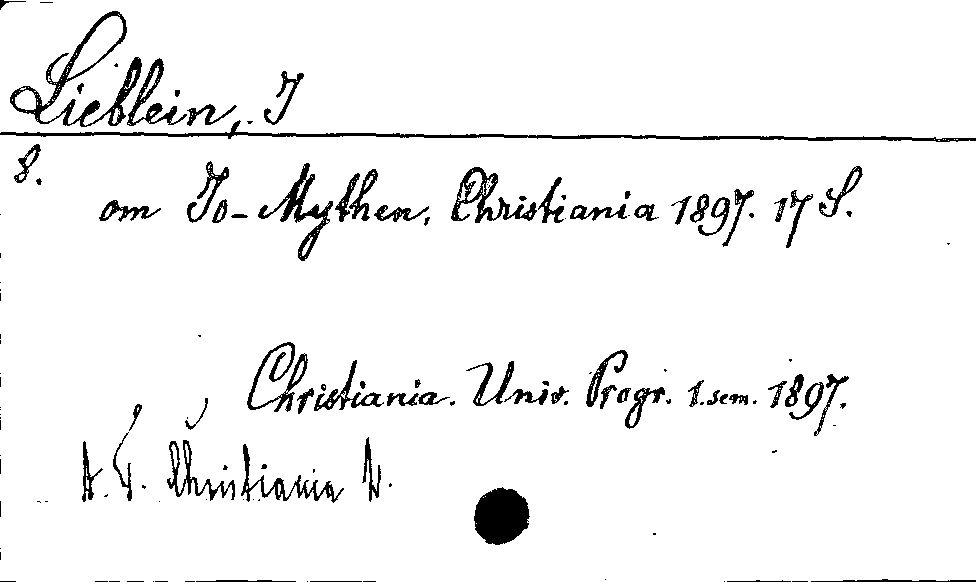 Lieblein, J
8.
om Io-Mythen, Christiania 1897. 17 S.
Christiania. Univ. Progr. 1. sem. 1897.
Christiania U.